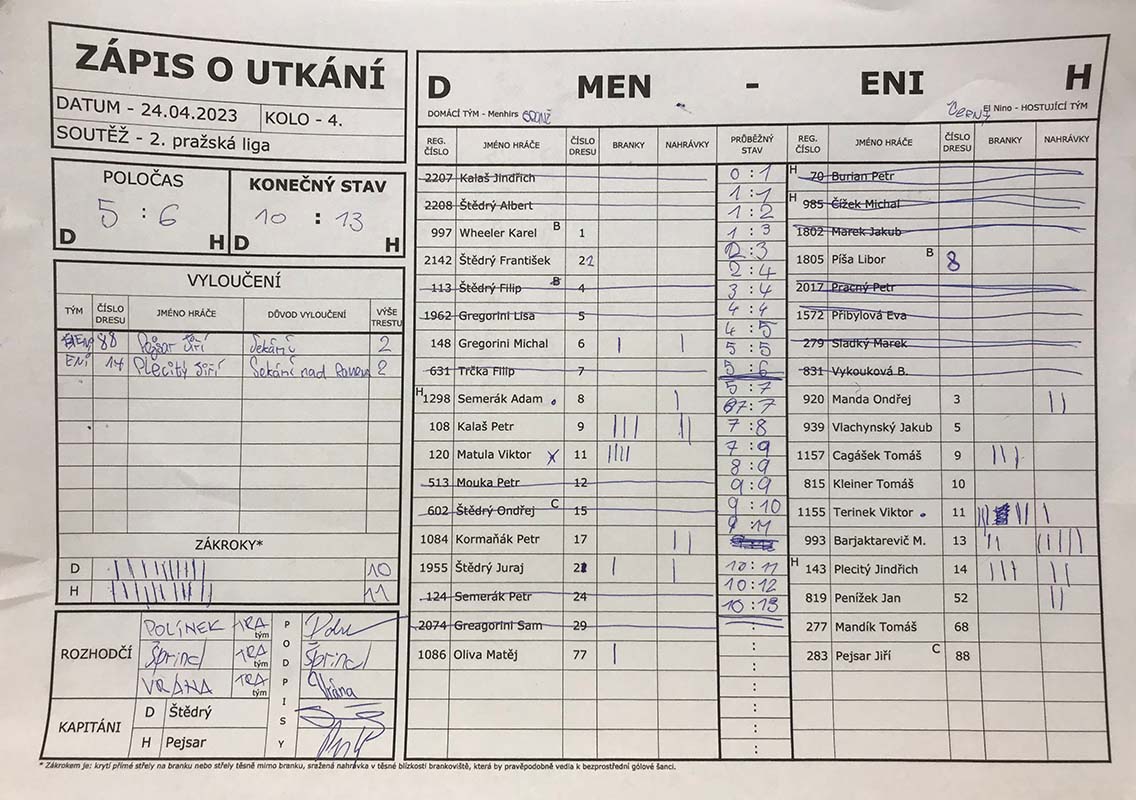 ZÁPIS O UTKÁNÍ
DATUM - 24.04.2023 KOLO - 4.
SOUTĚŽ - 2. pražská liga
POLOČAS
5 : 6
D H
KONEČNÝ STAV
10 : 13
D H
VYLOUČENÍ
TÝM ČÍSLO DRESU JMÉNO HRÁČE DŮVOD VYLOUČENÍ VÝŠE TRESTU
ENI 88 Pejsar Jiří Sekání 2
ENI 14 Plecitý Jiří Sekání nad ramena 2
ZÁKROKY*
D 10
H 11
ROZHODČÍ
POLÍNEK TRA tým
Šprincl TRA tým Šprincl
VRÁNA TRA tým Vrána
PODPISY
KAPITÁNI
D Štědrý
H Pejsar
D MEN - ENI H
DOMÁCÍ TÝM - Menhirs
ČERNÝ El Nino - HOSTUJÍCÍ TÝM
REG. ČÍSLO JMÉNO HRÁČE ČÍSLO DRESU BRANKY NAHRÁVKY PRŮBĚŽNÝ STAV REG. ČÍSLO JMÉNO HRÁČE ČÍSLO DRESU BRANKY NAHRÁVKY
2207 Kalaš Jindřich
2208 Štědrý Albert
997 Wheeler Karel B 1
2142 Štědrý František 22
113 Štědrý Filip B 4
1962 Gregorini Lisa 5
148 Gregorini Michal 6
631 Trčka Filip 7
H 1298 Semerák Adam 8
108 Kalaš Petr 9
120 Matula Viktor 11
513 Mouka Petr 12
602 Štědrý Ondřej C 15
1084 Kormaňák Petr 17
1955 Štědrý Juraj
124 Semerák Petr 24
2074 Greagorini Sam 29
1086 Oliva Matěj 77
0 : 1
1 : 1
1 : 2
1 : 3
2 : 3
2 : 4
3 : 4
4 : 4
4 : 5
5 : 5
5 : 6
5 : 7
7 : 7
7 : 8
7 : 9
8 : 9
9 : 9
9 : 10
9 : 11
10 : 11
10 : 12
10 : 13
H 70 Burian Petr
H 985 Čížek Michal
1802 Marek Jakub
1805 Píša Libor B 8
2017 Pracný Petr
1572 Přibylová Eva
279 Sladký Marek
831 Vykouková B.
920 Manda Ondřej 3
939 Vlachynský Jakub 5
1157 Cagášek Tomáš 9
815 Kleiner Tomáš 10
1155 Terinek Viktor 11
993 Barjaktarevič M. 13
H 143 Plecitý Jindřich 14
819 Penížek Jan 52
277 Mandík Tomáš 68
283 Pejsar Jiří C 88
* Zákrokem je: krytí přímé střely na branku nebo střely těsně mimo branku, sražená nahrávka v těsné blízkosti brankoviště, která by pravěpodobně vedla k bezprostřední gólové šanci.